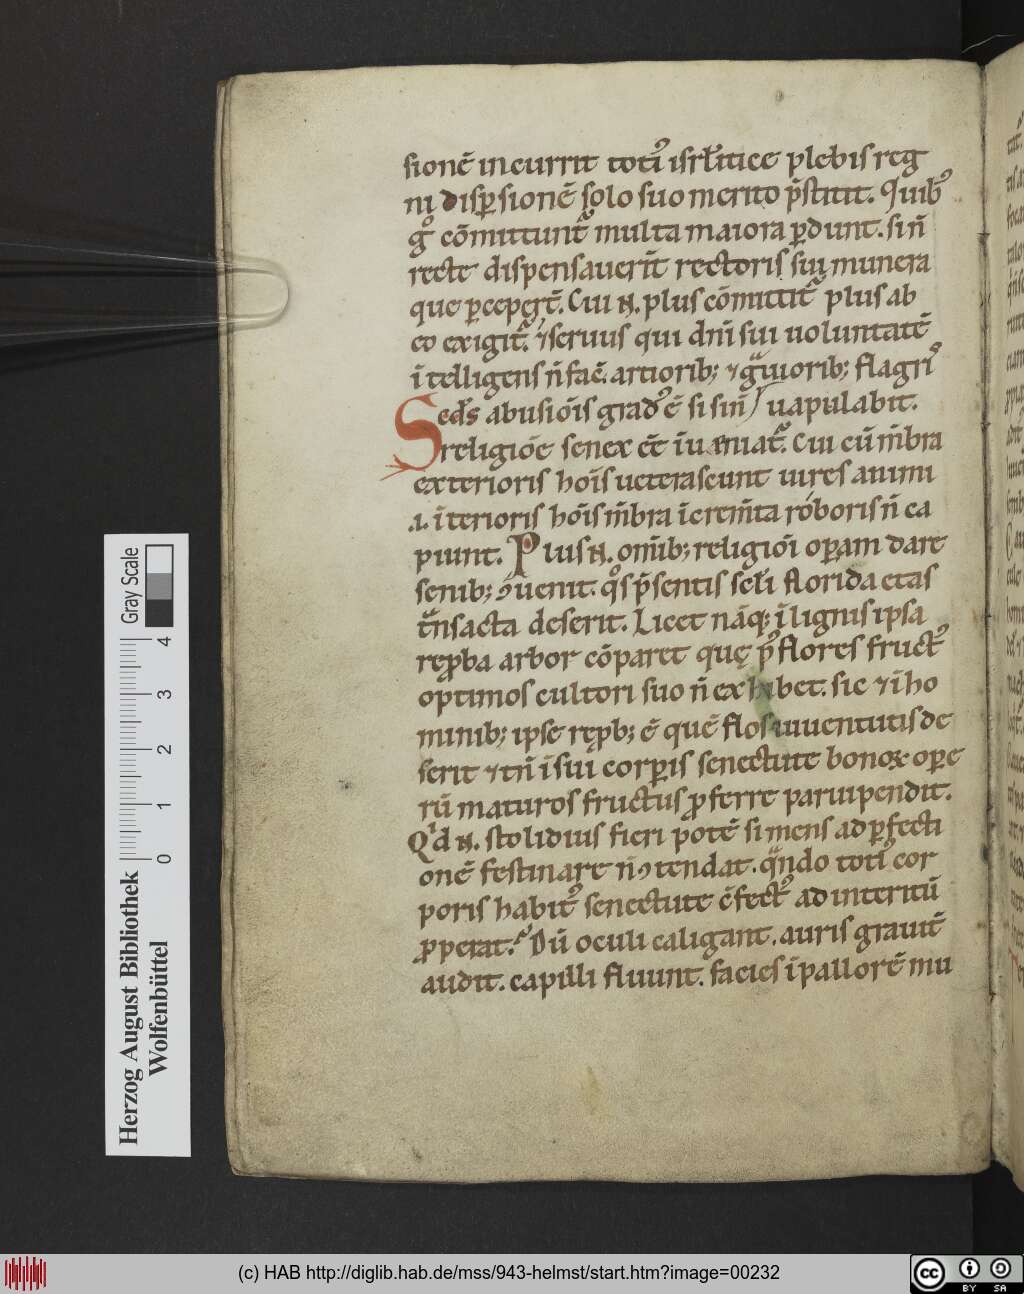 sionē incurrit totꝰ isrł̄iticę plebis reg
ni disꝑsionē solo suo merito p̄stitit. Quibꝰ
gͦ cōmittunt᷑ multa maiora ꝑdunt. si ñ
recte dispensauerīt rectoris sui munera
que ꝑcepert̄. Cui .n̄. plus cōmittit᷑ plus ab
eo exigit᷑. ⁊ seruus qui dn̄i sui uoluntatē
ītelligens ñ faē. artiorib; ⁊ gͣuiorib; flagrꝭ
uapulabit.
Secd̄s abusiōis gradꝰ ē si sin̄
religiōe senex eē īueniat᷑. Cui cū m̄bra
exterioris hoīs ueterascunt uires animi
.i. īterioris hoīs m̄bra īcrem̄ta roboris ñ ca
piunt. Plus .n̄. omīb; religiōi oꝑam dare
senib; ꝯuenit. qͦs p̄sentis scłi florida etas
tͣnsacta deserit. Licet nāq; ī lignis ipsa
reꝓba arbor cōparet quę pꝰ flores fructꝰ
optimos cultori suo ñ exhibet. sic ⁊ ī ho
minib; ipse reꝓb; ē quē flos iuuentutis de
serit ⁊ tn̄ ī sui corꝑis senectute bonoꝝ oꝑe
rū maturos fructus ꝓferre paruipendit.
Qd .n̄. stolidius fieri potē si mens ad ꝑfecti
onē festinare ñ ꝯtendat. qͣndo totꝰ cor
poris habitꝰ senectute ēfectꝰ ad interitū
ꝓperat? Dū oculi caligant. auris grauit̄
audit. capilli fluunt. facies ī pallorē mu
Herzog August Bibliothek
Wolfenbüttel
0 1 2 3 4
Gray Scale
(c) HAB http://diglib.hab.de/mss/943-helmst/start.htm?image=00232
cc BY SA